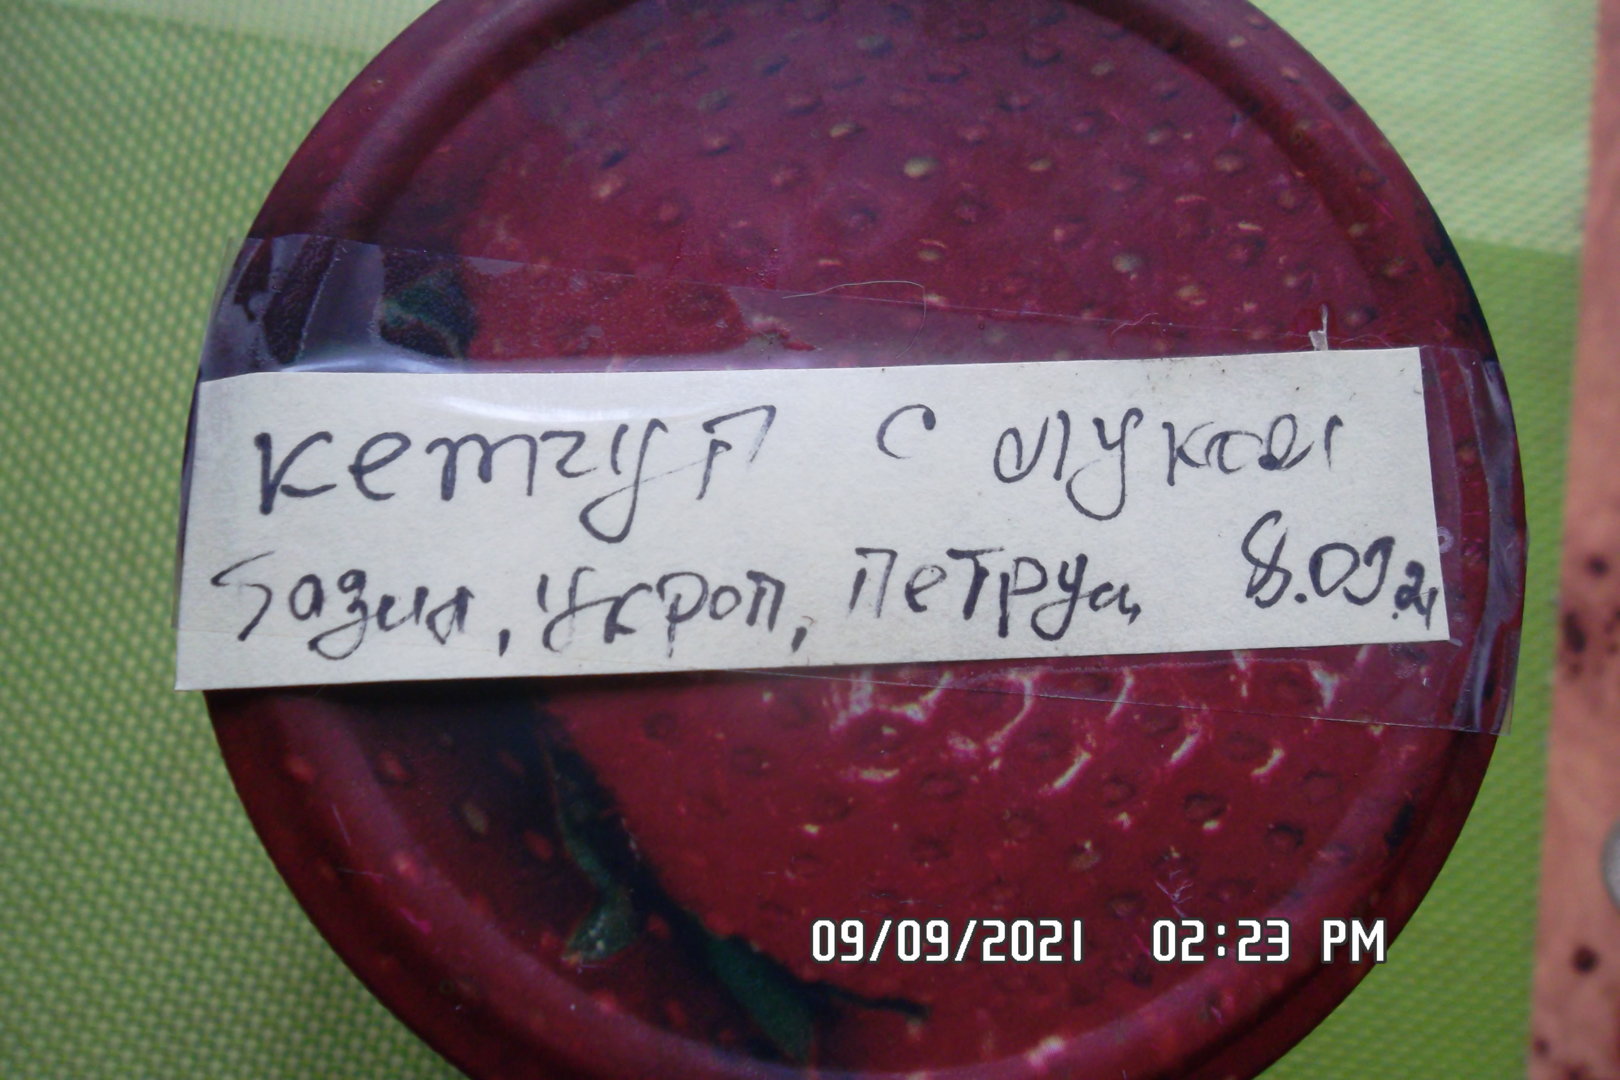 кетчуп с луком
базил, укроп, петруш 8.09.21
09/09/2021 02:23 PM